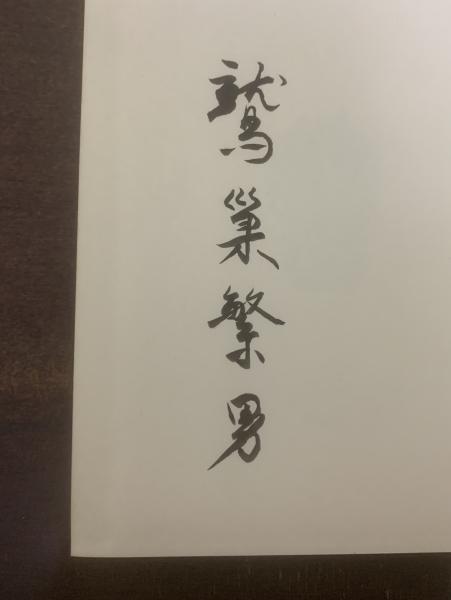 鷲巣繁男